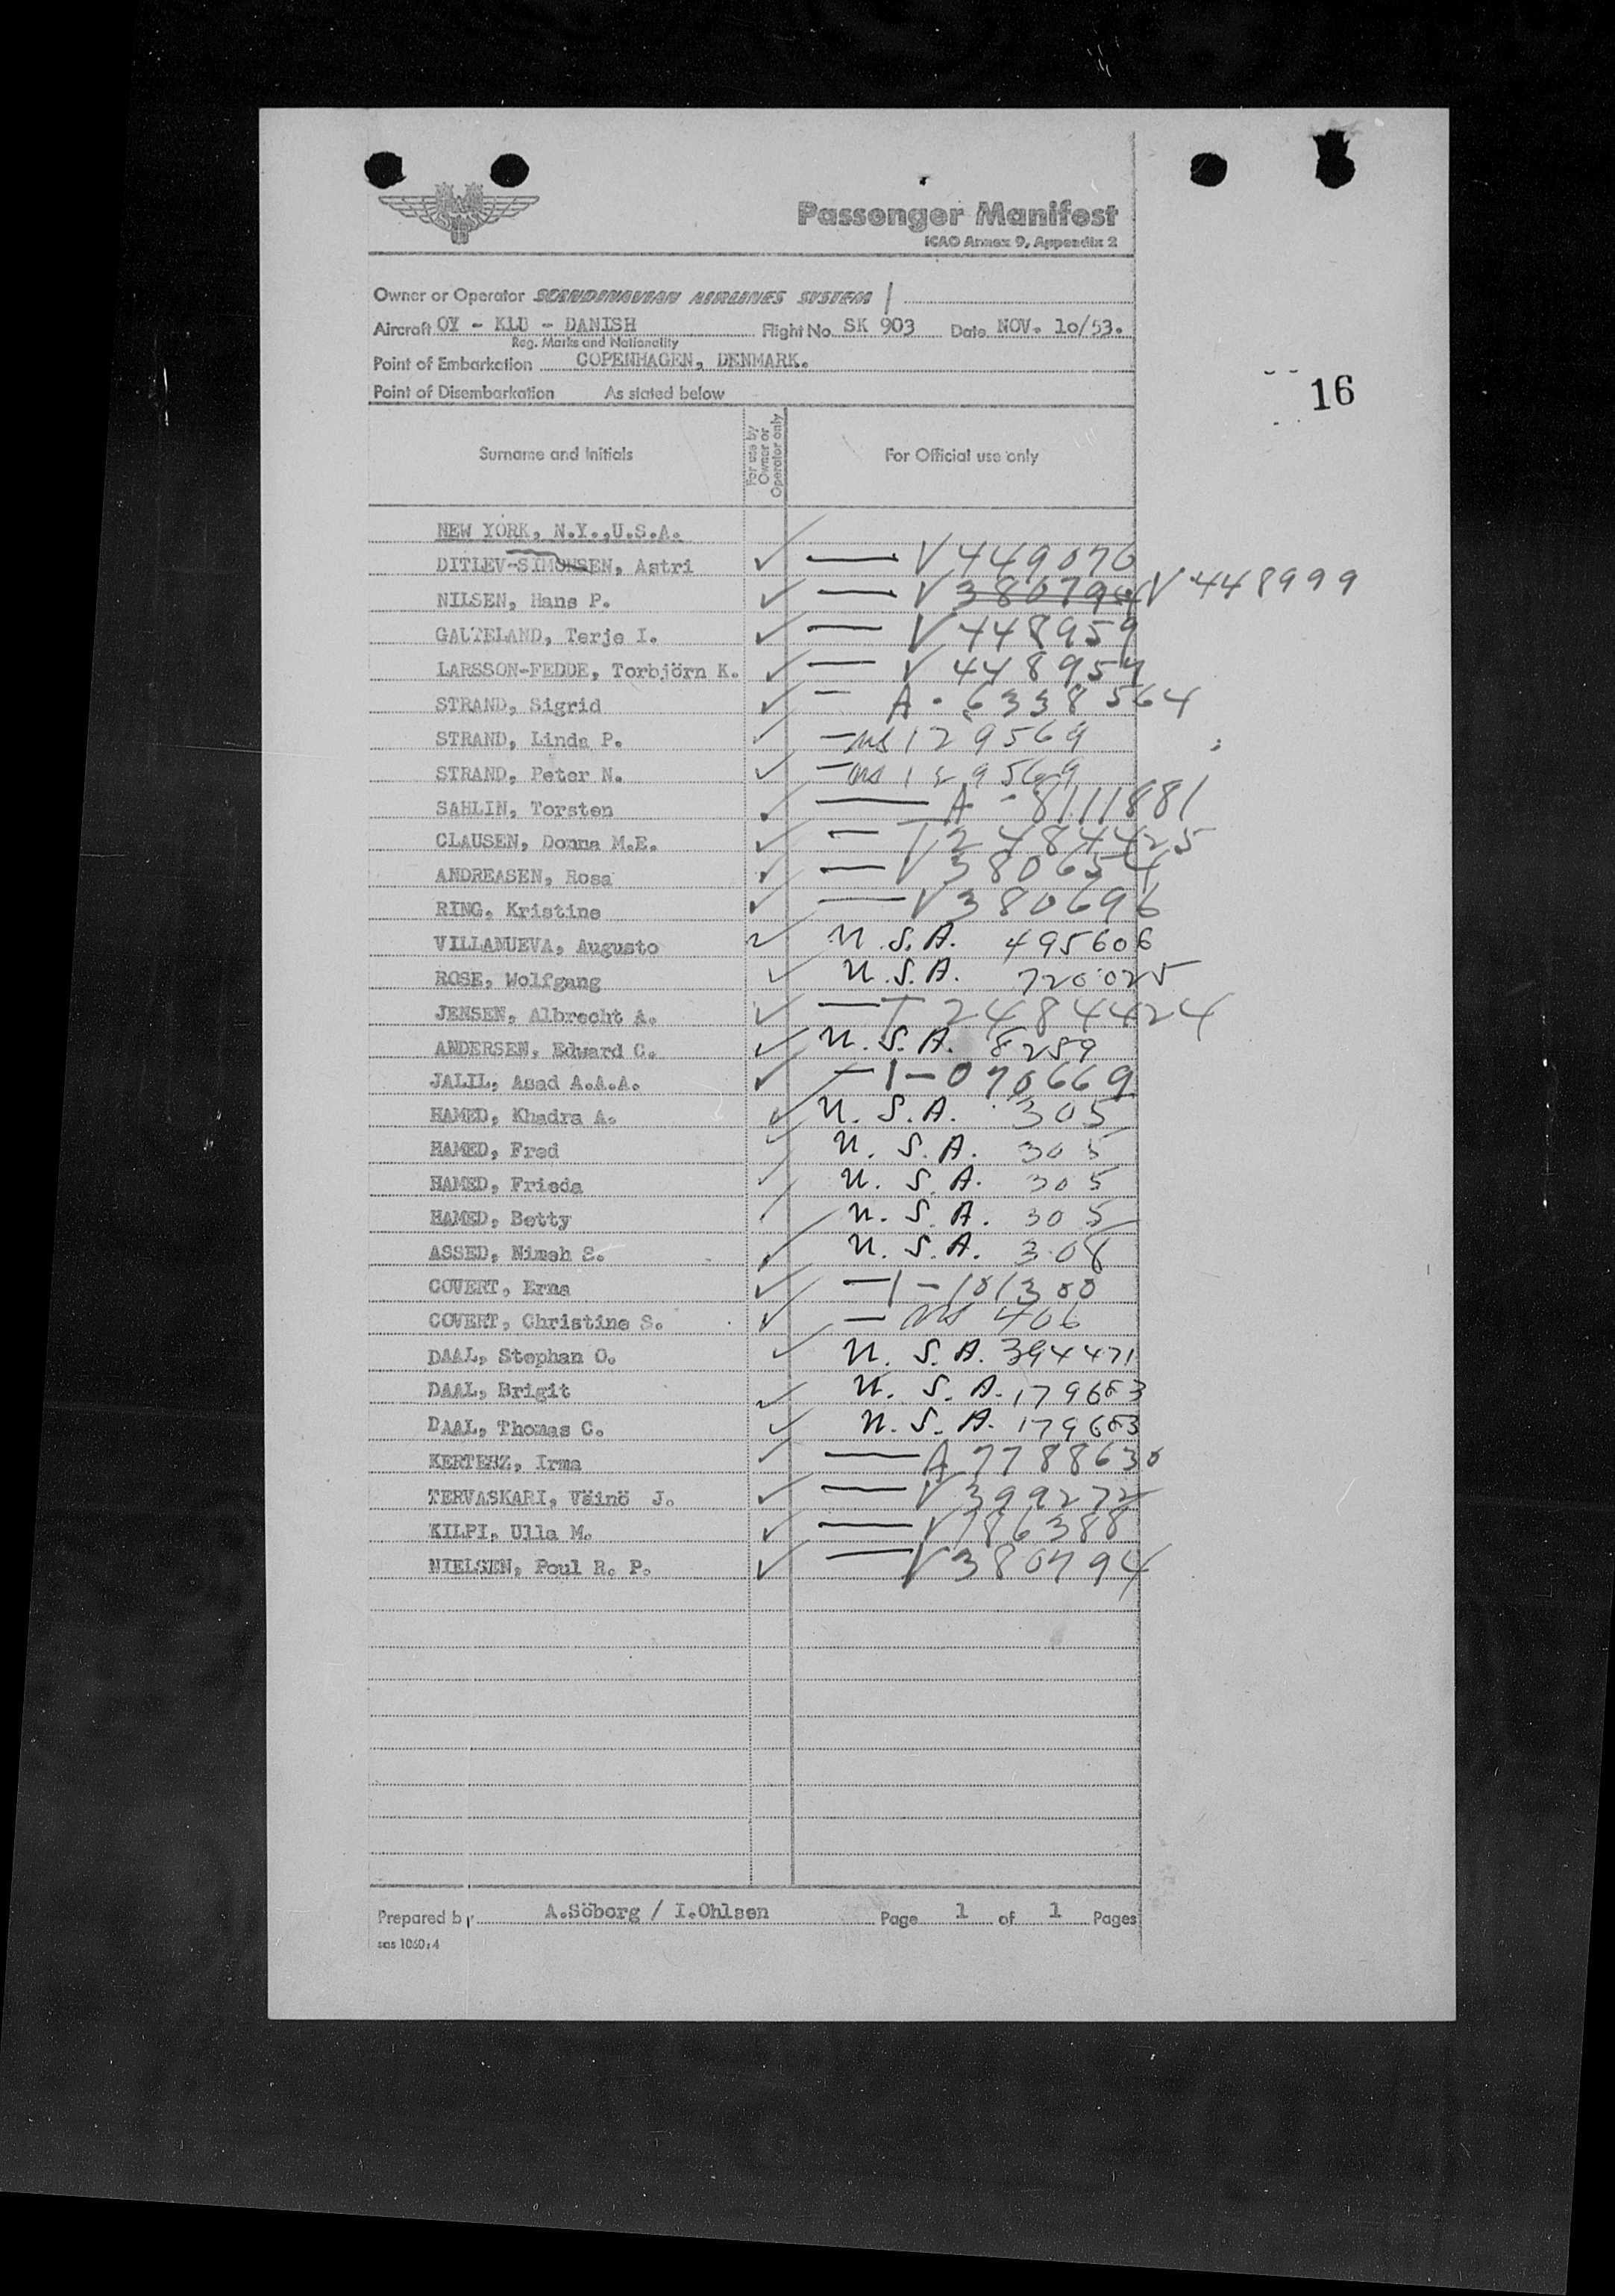 Passenger Manifest
ICAO Annex 9, Appendix 2
Owner or Operator SCANDINAVIAN AIRLINES SYSTEM /
Aircraft OY - KLU - DANISH Flight No. SK 903 Date NOV. 10/53.
Reg. Marks and Nationality
Point of Embarkation COPENHAGEN, DENMARK.
Point of Disembarkation As stated below
16
Surname and Initials For use by Owner or Operator only For Official use only
NEW YORK, N.Y.,U.S.A.
DITLEV-SIMONSEN, Astri ✓ — V 449076
NILSEN, Hans P. ✓ — V 380794 V 448999
GAUTELAND, Terje I. ✓ — V 448959
LARSSON-FEDDE, Torbjörn K. ✓ — V 448954
STRAND, Sigrid ✓ — A - 6338564
STRAND, Linda P. ✓ — 129569
STRAND, Peter N. ✓ — 129569
SAHLIN, Torsten ✓ — A - 8111881
CLAUSEN, Donna M.E. ✓ — T 2484425
ANDREASEN, Rosa ✓ — V 380654
RING, Kristine ✓ — V 380696
VILLANUEVA, Augusto ✓ U.S.A. 495606
ROSE, Wolfgang ✓ U.S.A. 720025
JENSEN, Albrecht A. ✓ — T 2484424
ANDERSEN, Edward C. ✓ U.S.A. 8259
JALIL, Asad A.A.A. ✓ — 1 - 070669
HAMED, Khadra A. ✓ U.S.A. 305
HAMED, Fred ✓ U.S.A. 305
HAMED, Frieda ✓ U.S.A. 305
HAMED, Betty ✓ U.S.A. 305
ASSED, Nimeh S. ✓ U.S.A. 308
COVERT, Erna ✓ — 1 - 101300
COVERT, Christine S. ✓ — 406
DAAL, Stephan O. ✓ U.S.A. 394471
DAAL, Brigit ✓ U.S.A. 179683
DAAL, Thomas C. ✓ U.S.A. 179683
KERTESZ, Irma ✓ — A 7788630
TERVASKARI, Väinö J. ✓ — V 399272
KILPI, Ulla M. ✓ — V 186388
NIELSEN, Poul R. P. ✓ — V 380794
Prepared by A.Söborg / I.Ohlsen Page 1 of 1 Pages
sas 1060:4